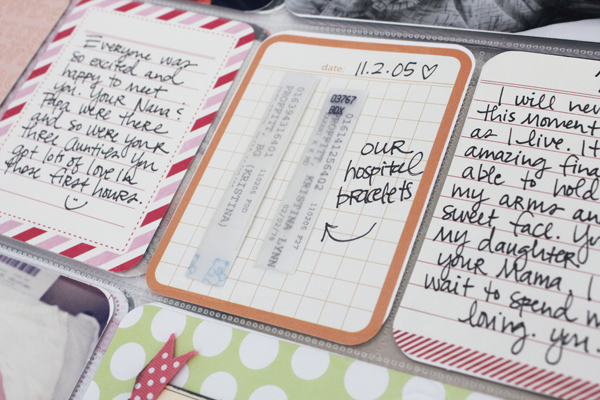 Everyone was
so excited and
happy to meet
you. Your Nana &
Papa were there
and so were your
three Aunties. You
got lots of love in
those first hours.
date: 11.2.05
OUR
hospital
bracelets
03767
BOX
016141256402
KRISTINA LYNN
110206
016943316401
PROFFIT, BG
(KRISTINA)
110206 POC
I will nev
this moment
as I live. It
amazing fina
able to hold
my arms an
sweet face. Yo
my daughter
your Mama. I
wait to spend m
loving. you.